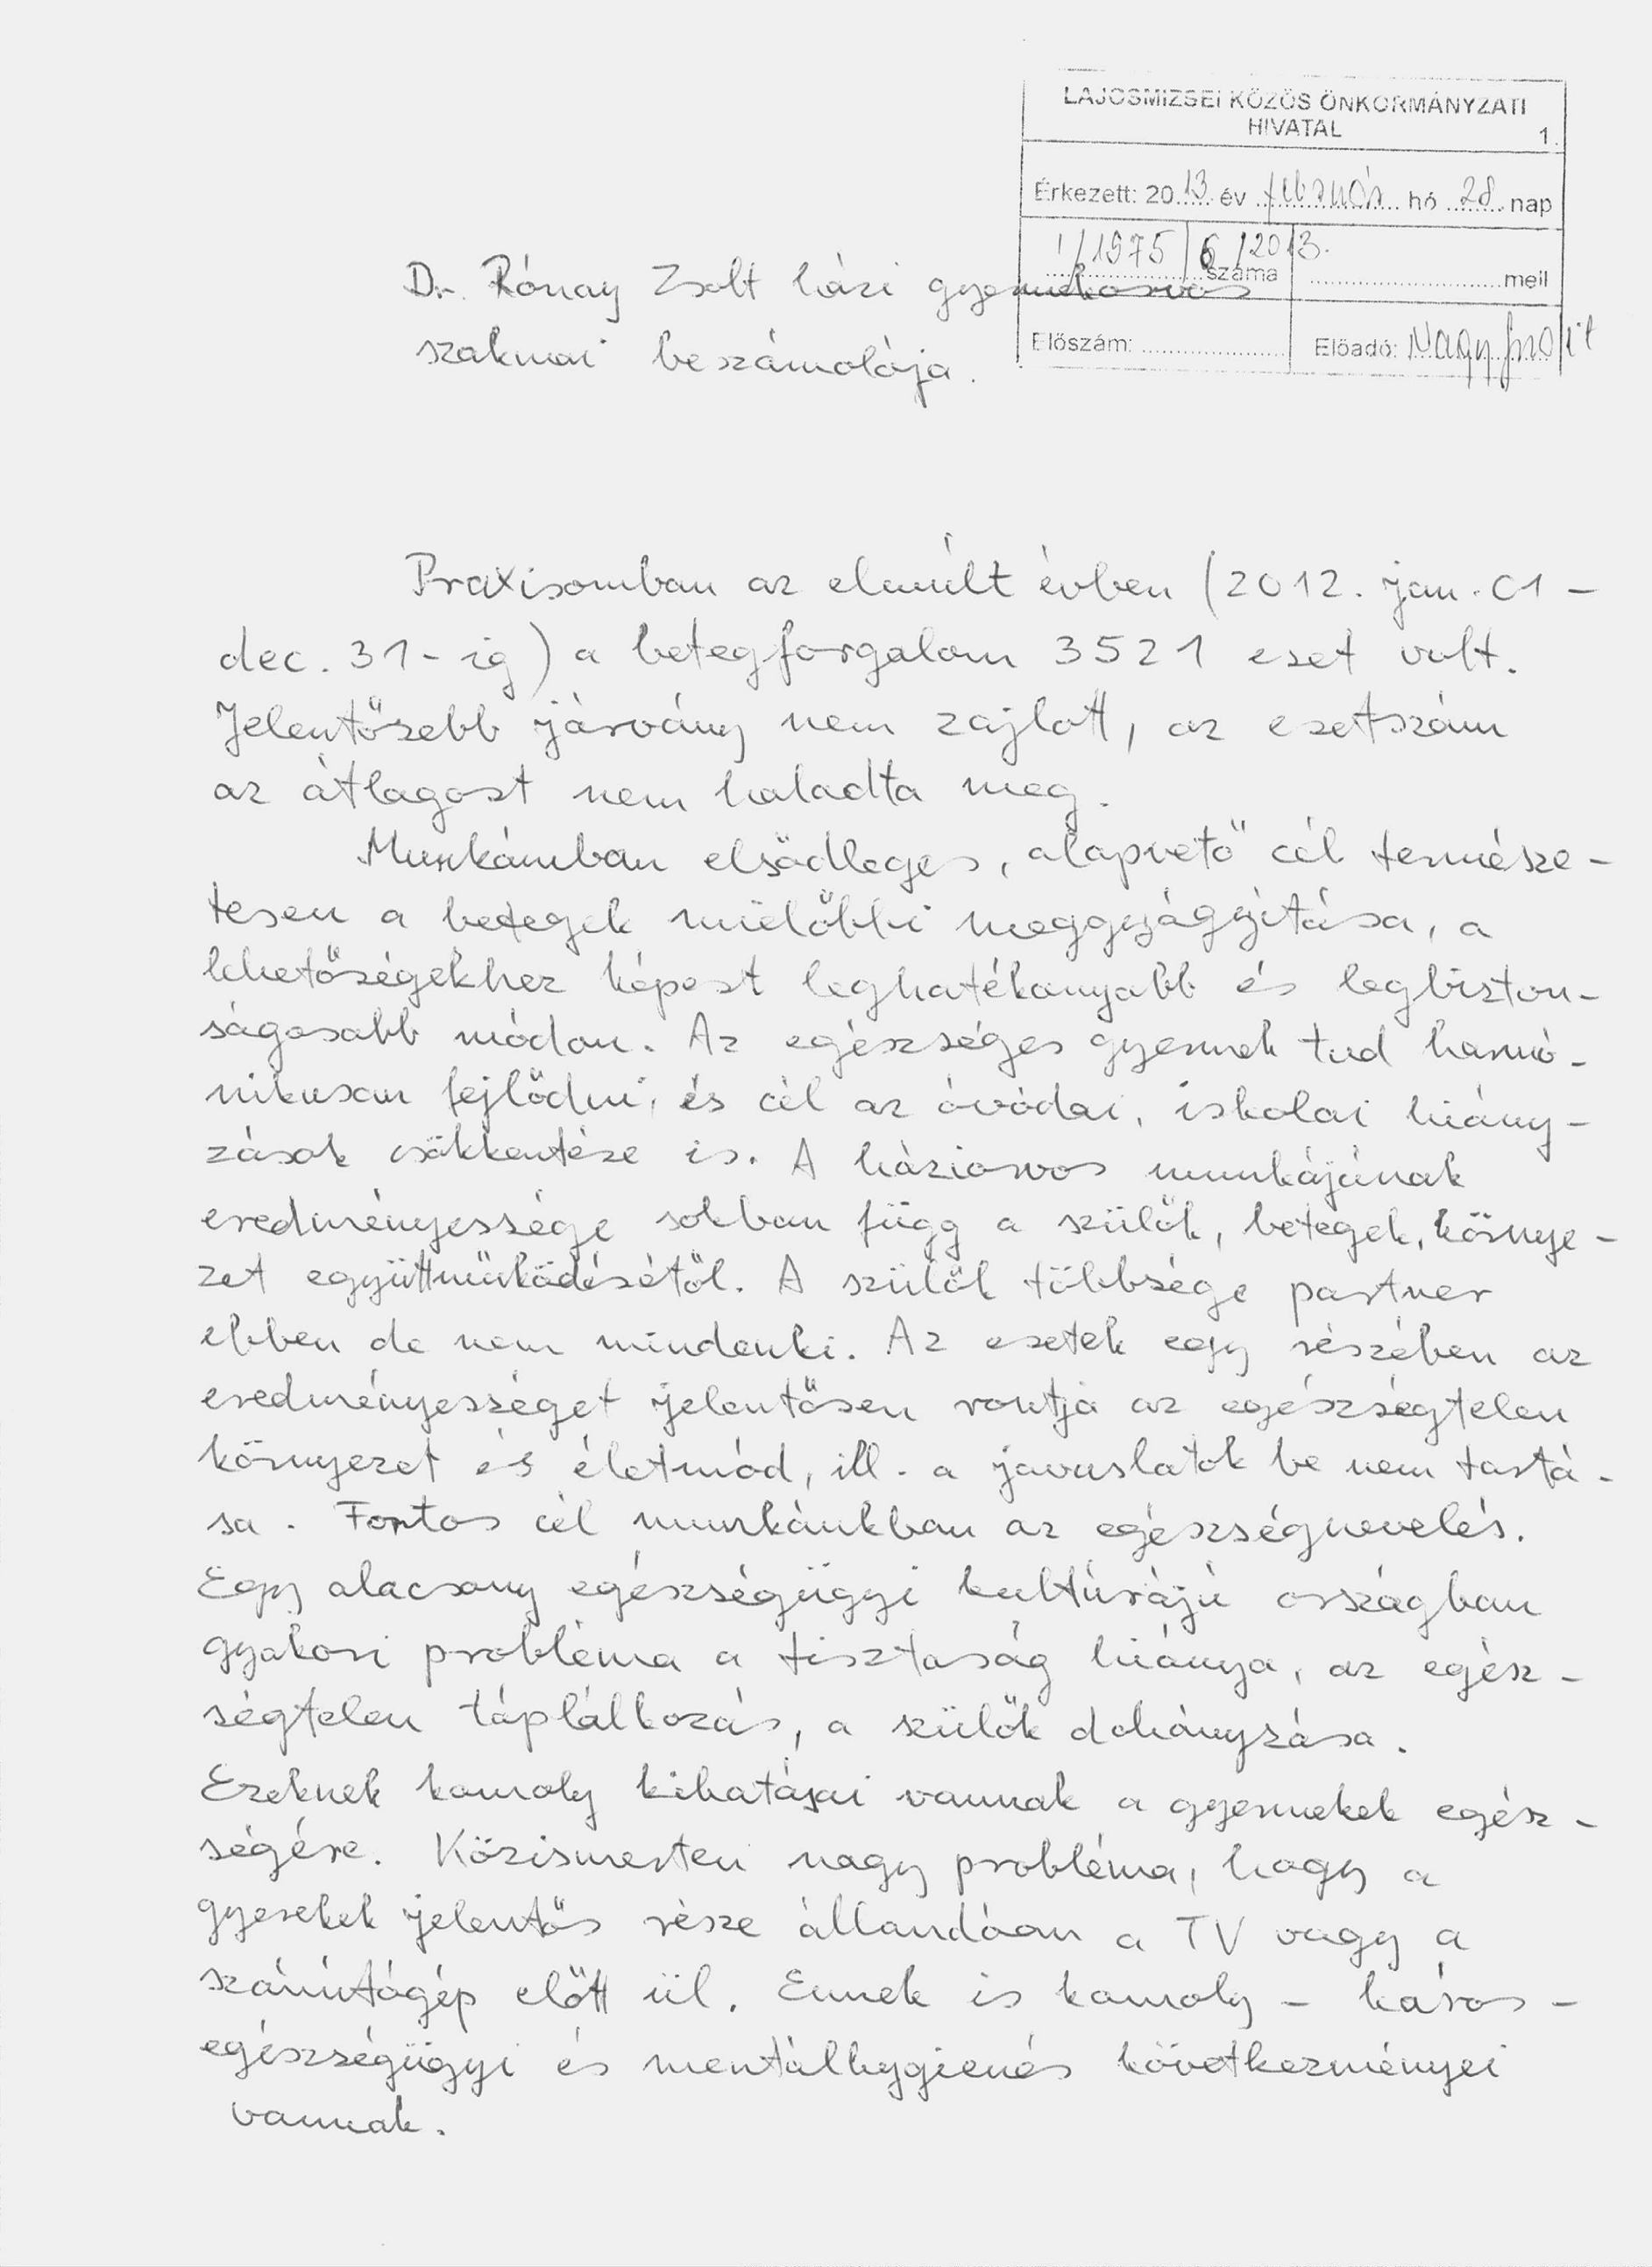 LAJOSMIZSEI KÖZÖS ÖNKORMÁNYZATI
HIVATAL 1.
Érkezett: 2013 év február hó 28 nap
1/1975/6/2013.
száma mell
Előszám: Előadó: Nagy
Dr. Rónay Zsolt házi gyermekorvos
szakmai beszámolója.
Praxisomban az elmúlt évben (2012. jan. 01 -
dec. 31-ig) a betegforgalom 3521 eset volt.
Jelentősebb járvány nem zajlott, az esetszám
az átlagost nem haladta meg.
Munkámban elsődleges, alapvető cél természe-
tesen a betegek mielőbbi meggyógyítása, a
lehetőségekhez képest leghatékonyabb és legbizton-
ságosabb módon. Az egészséges gyermek tud harmó-
nikusan fejlődni, és cél az óvódai, iskolai hiány-
zások csökkentése is. A háziorvos munkájának
eredményessége sokban függ a szülők, betegek, környe-
zet együttműködésétől. A szülők többsége partner
ebben de nem mindenki. Az esetek egy részében az
eredményességet jelentősen rontja az egészségtelen
környezet és életmód, ill. a javaslatok be nem tartá-
sa. Fontos cél munkánkban az egészségnevelés.
Egy alacsony egészségügyi kultúrájú országban
gyakori probléma a tisztaság hiánya, az egész-
ségtelen táplálkozás, a szülők dohányzása.
Ezeknek komoly kihatásai vannak a gyermekek egész-
ségére. Közismerten nagy probléma, hogy a
gyerekek jelentős része állandóan a TV vagy a
számítógép előtt ül. Ennek is komoly - káros -
egészségügyi és mentálhygienés következményei
vannak.